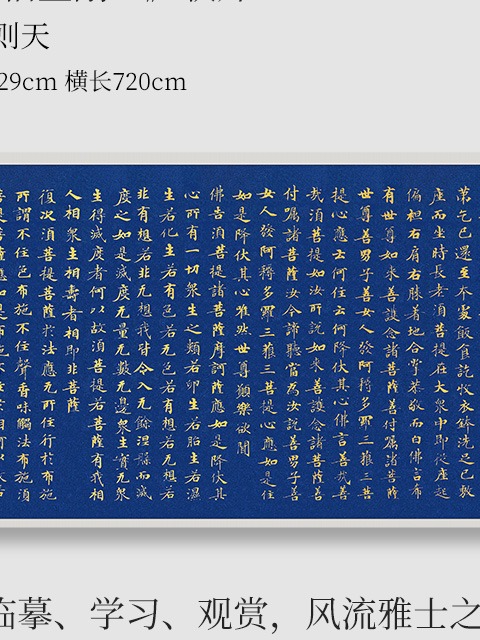 则天
29cm 横长720cm
苐乞已還至本家飯食訖收衣鉢洗足已敷
座而坐時長老湏菩提在大眾中即從座起
偏袒右肩右膝著地合掌恭敬而白佛言希
有世尊如来善護念諸菩薩善付囑諸菩薩
世尊善男子善女人發阿耨多羅三藐三菩
提心應云何住云何降伏其心佛言善哉善
哉湏菩提如汝所說如来善護念諸菩薩善
付囑諸菩薩汝今諦聽當為汝說善男子善
女人發阿耨多羅三藐三菩提心應如是住
如是降伏其心唯然世尊願樂欲聞
佛告湏菩提諸菩薩摩訶薩應如是降伏其
心所有一切眾生之類若卵生若胎生若濕
生若化生若有色若无色若有想若无想若
非有想若非无想我皆令入无餘涅槃而滅
度之如是滅度无量无數无邊眾生實无眾
生得滅度者何以故湏菩提若菩薩有我相
人相眾生相壽者相即非菩薩
復次湏菩提菩薩於法應无所住行於布施
所謂不住色布施不住聲香味觸法布施湏
临摹、学习、观赏，风流雅士之